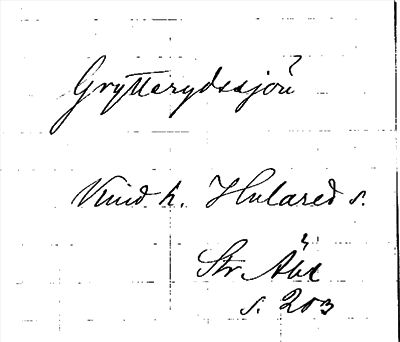 Grytterydssjön
Kind h. Hulared s.
Str Äbl
s. 203